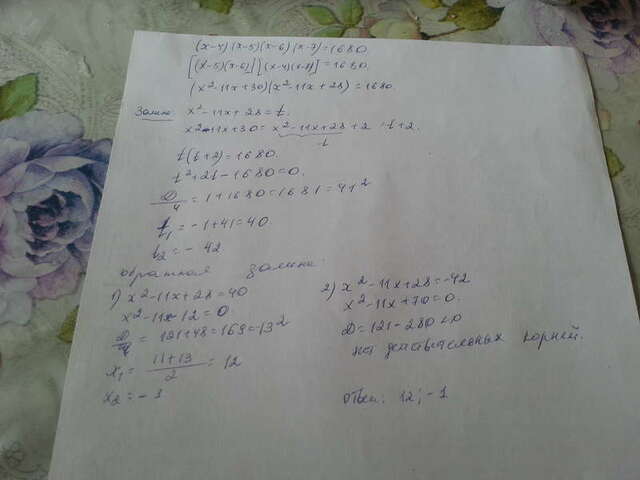 (x-4)(x-5)(x-6)(x-7)=1680.
[(x-5)(x-6)][(x-4)(x-7)]=1680.
(x²-11x+30)(x²-11x+28)=1680.
Замена x²-11x+28=t.
x²-11x+30=x²-11x+28+2=t+2.
t
t(t+2)=1680.
t²+2t-1680=0.
D/4=1+1680=1681=41²
t₁=-1+41=40
t₂=-42
обратная замена.
1) x²-11x+28=40
x²-11x-12=0.
D=121+48=169=13²
x₁=(11+13)/2=12
x₂=-1
2) x²-11x+28=-42
x²-11x+70=0.
D=121-280<0
нет действительных корней.
Ответ: 12; -1